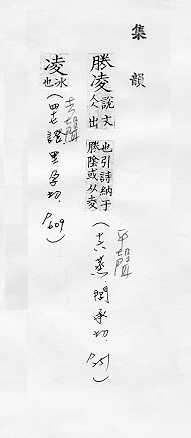 集韻
𠗲凌說文仌出也引詩納于𠗲陰或从夌(十六蒸,閭承切,P.251)
平聲
凌冰也(四七證里孕切,P.609)
去聲